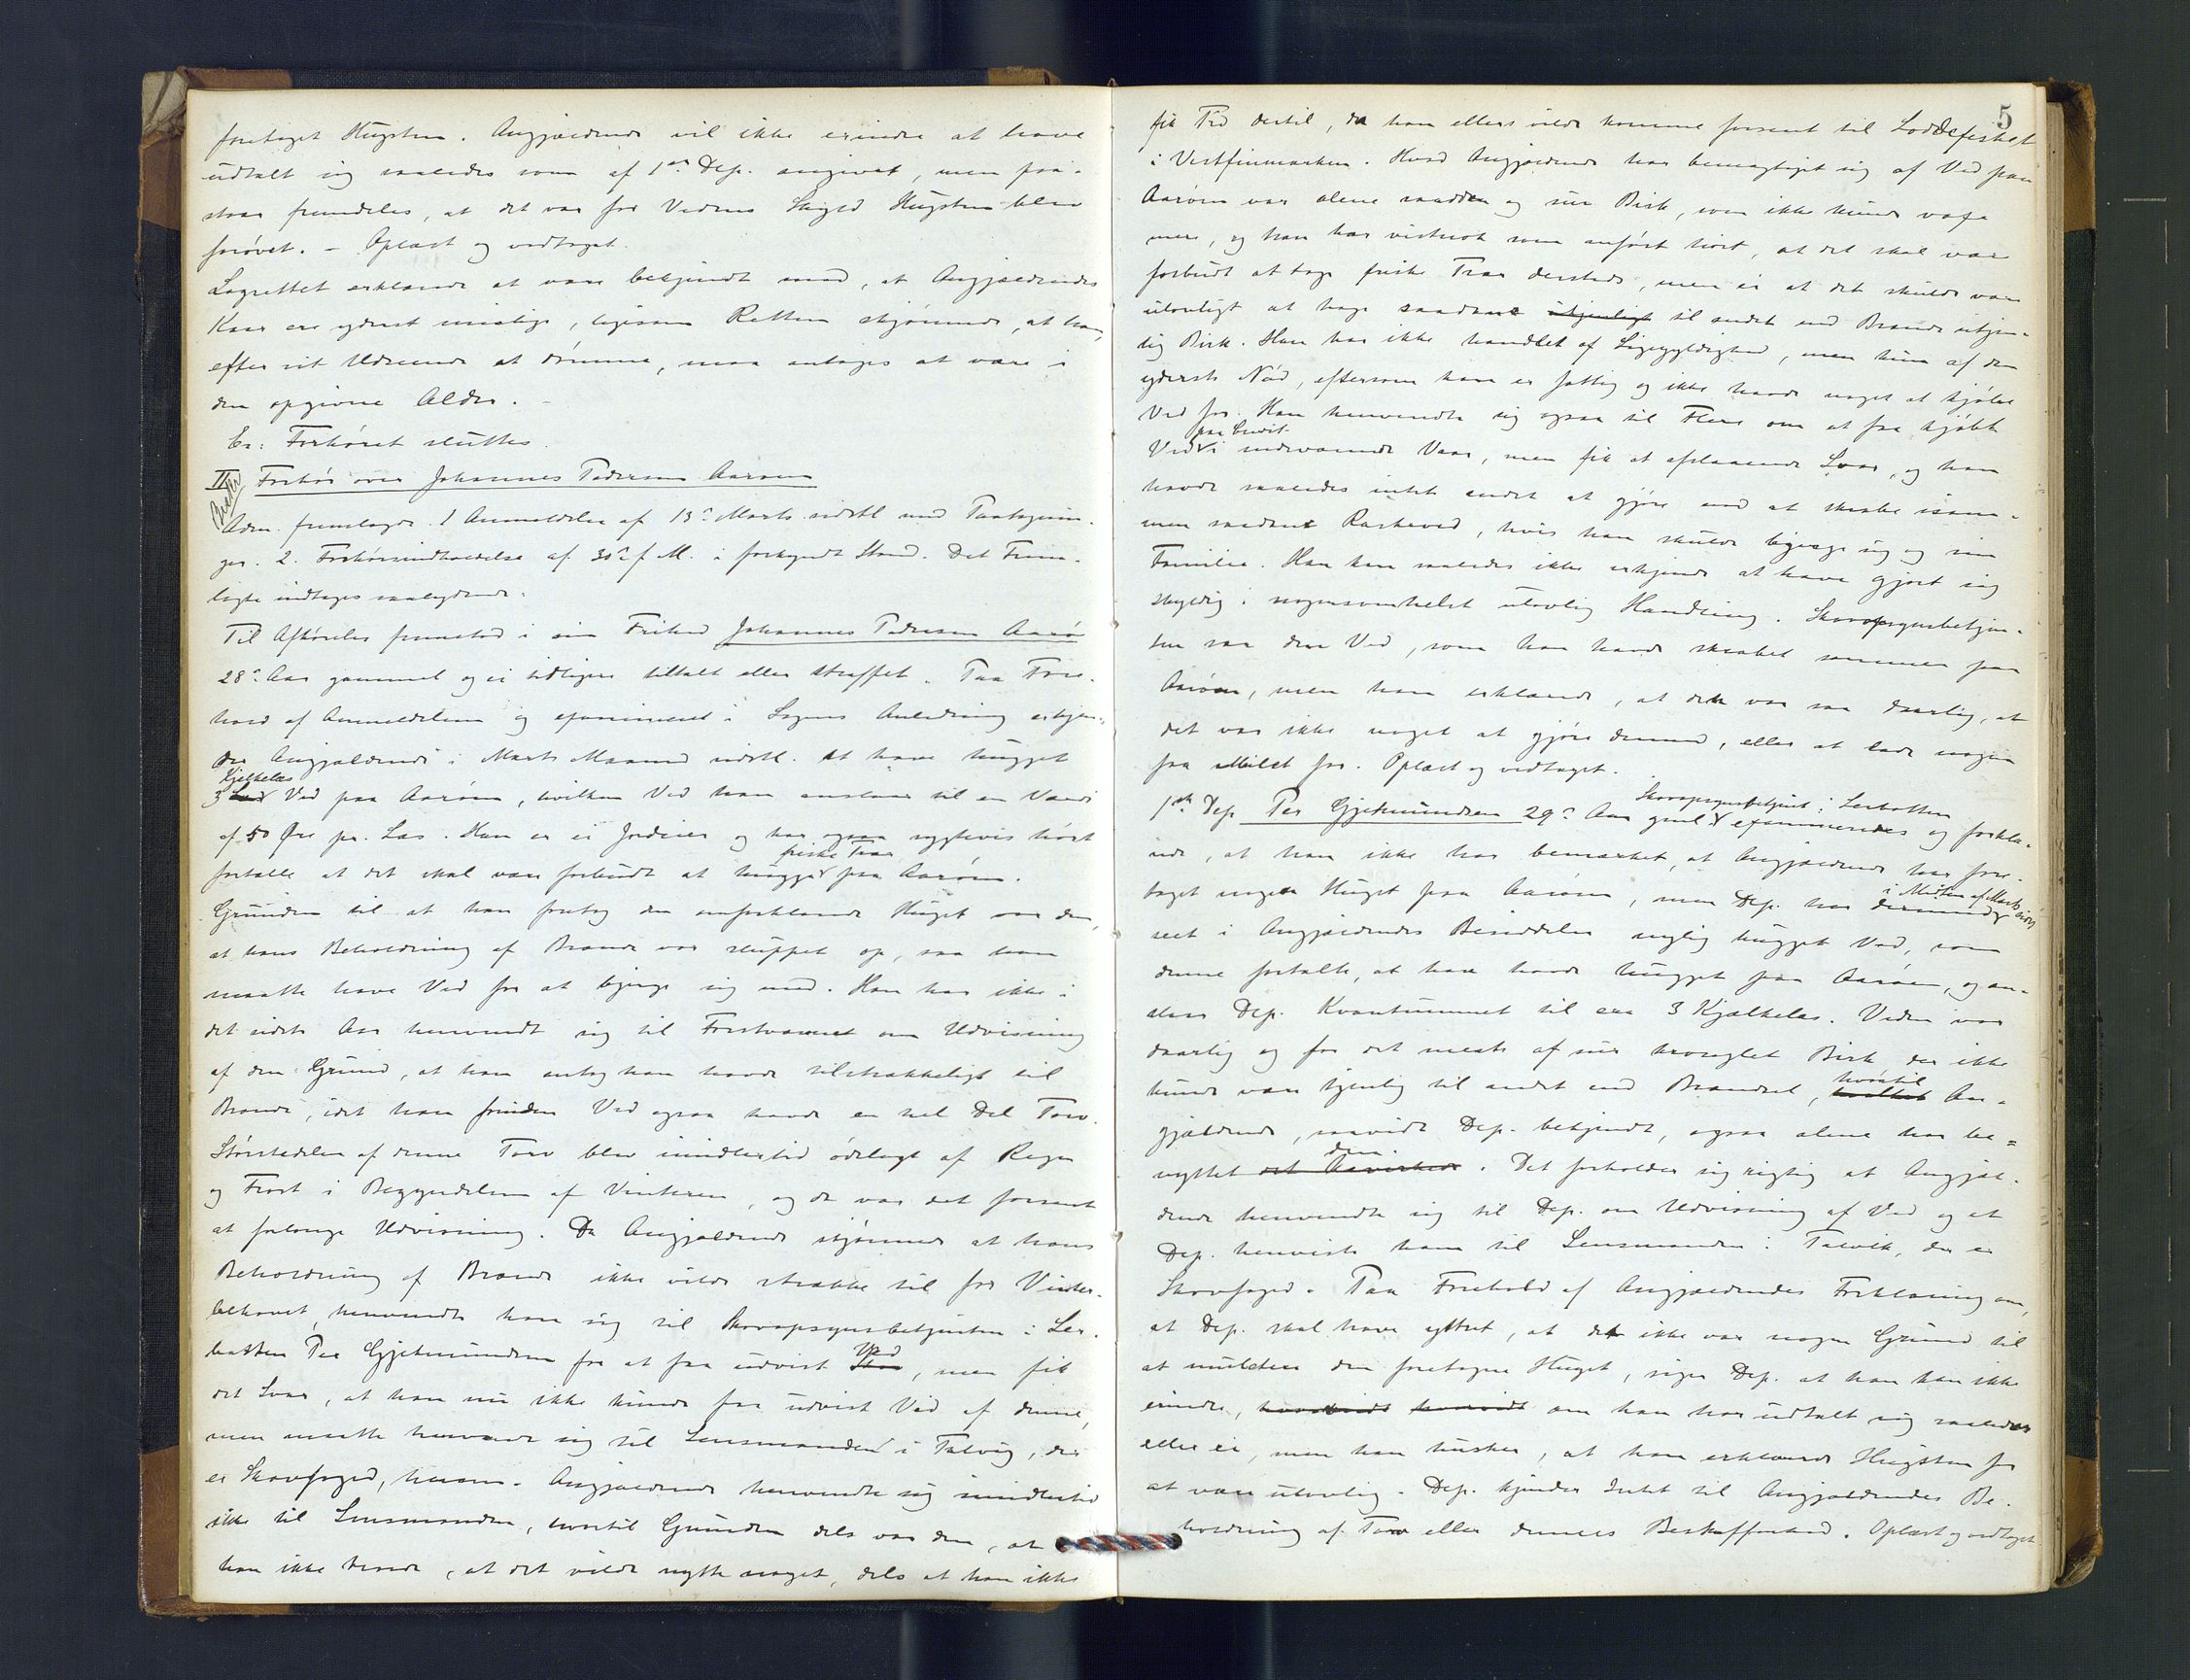 foretaget Hugsten. Angjældende vil ikke erindre at have
udtalt sig saaledes som af 1ste Dep. angivet, men paa-
staar fremdeles, at det var for Vedens Skyld Hugsten blev
forøvet. – Oplæst og vedtaget.
Lagrettet erklærede at være bekjendt med, at Angjældendes
Kaar ere yderst uslige, ligesom Retten skjønnede, at han,
efter sit Udseende at dømme, maa antages at være i
den opgivne Alder. –
Er: Forhøret sluttes.
II Forhør over Johannes Pedersen Aarøen
Adm. fremlagde 1 Anmeldelse af 13de Marts sidstl. med Paategnin-
ger. 2. Forhørsindkaldelse af 30te f. M. i forkyndt Stand. Det Frem-
lagte indtages saalydende.
Til Afhørelse fremstod i sin Frihed Johannes Pedersen Aarø
28de Aar gammel og ei tidligere tiltalt eller straffet. Paa Fore-
hold af Anmeldelsen og examineret i Sagens Anledning erkjen-
der Angjældende i Marts Maaned sidstl. at have hugget
3 Kjelkelæs Ved paa Aarøen, hvilken Ved han anslaar til en Værdi
af 50 Øre pr. Læs. Han er ei Jordeier og har ogsaa rygtevis hørt
fortælle at det skal være forbudt at hugge friske Træer paa Aarøen.
Grunden til at han foretog den omforklarede Huget var den,
at hans Beholdning af Brænde var sluppet op, saa han
maatte have Ved for at bjerge sig med. Han har ikke i
det sidste Aar henvendt sig til Forstvæsenet om Udvisning
af den Grund, at han antog han havde tilstrækkeligt til
Brænde, idet han foruden Ved ogsaa havde en hel Del Torv.
Størstedelen af denne Torv blev imidlertid ødelagt af Regn
og Frost i Begyndelsen af Vinteren, og da var det forsent
at forlange Udvisning. Da Angjældende skjønnede at hans
Beholdning af Brænde ikke vilde strække til for Vinter-
behovet, henvendte han sig til Skovopsynsbetjenten i Ler-
botten Per Gjetmundsen for at faa udvist Ved, men fik
det Svar, at han nu ikke kunde faa udvist Ved af denne,
men maatte henvende sig til Lensmanden i Talvig, der
er Skovfoged, herom. Angjældende henvendte sig imidlertid
ikke til Lensmanden, hvortil Grunden dels var den, at
han ikke troede, at det vilde nytte noget, dels at han ikke
5
fik Tid dertil, da han ellers vilde komme forsent til Loddefisket
i Vestfinmarken. Hvad Angjældende har bemægtiget sig af Ved paa
Aarøen var alene raadden og sur Birk, som ikke kunde voxe
mere, og han har vistnok som anført hørt, at det skal være
forbudt at tage friske Træer dersteds, men ei at det skulde være
ulovligt at tage saadant utjenligt til andet end Brænde utjen-
lig Birk. Han har ikke handlet af Ligegyldighed, men kun af den
yderste Nød, eftersom han er fattig og ikke havde noget at kjøbe
Ved for. Han henvendte sig ogsaa til Flere om at faa kjøbt
Ved paa Credit i indeværende Vaar, men fik et afslaaende Svar, og han
havde saaledes intet andet at gjøre end at skrabe isam-
men saadant Raskeved, hvis han skulde bjerge sig og sin
Familie. Han kan saaledes ikke erkjende at have gjort sig
skyldig i nogensomhelst ulovlig Handling. Skovopsynsbetjen-
ten saa den Ved, som han havde skrabet sammen paa
Aarøen, men han erklærede, at den var saa daarlig, at
det var ikke noget at gjøre dermed, eller at lade nogen
faa Mulct for. Oplæst og vedtaget.
1ste Dep. Per Gjetmundsen 29de Aar gml Skovopsynsbetjent i Lerbotten examineredes og forkla-
rede, at han ikke har bemærket, at Angjældende har fore-
taget nogen Huget paa Aarøen, men Dep. har i Midten af Marts
seet i Angjældendes Besiddelse nylig hugget Ved, som
denne fortalte, at han havde hugget paa Aarøen, og an-
slaar Dep. Kvantummet til ca 3 Kjælkelæs. Veden var
daarlig og for det meste af sur Birk der ikke
kunde være tjenlig til andet end Brændsel, hvortil An-
gjældende, saavidt Dep. bekjendt, ogsaa alene har be-
nyttet den. Det forholder sig rigtig at Angjæl-
dende henvendte sig til Dep. om Udvisning af Ved og at
Dep. henviste ham til Lensmanden i Talvik, der er
Skovfoged. Paa Forehold af Angjældendes Forklaring om,
at Dep. skal have yttret, at det ikke var nogen Grund til
at mulctere den foretagne Huget, siger Dep. at han kan ikke
erindre, om han har udtalt sig saaledes
eller ei, men han husker, at han erklærede Hugsten for
at være ulovlig. Dep. kjender Intet til Angjældendes Be-
holdning af Torv eller dennes Beskaffenhed. Oplæst og vedtaget